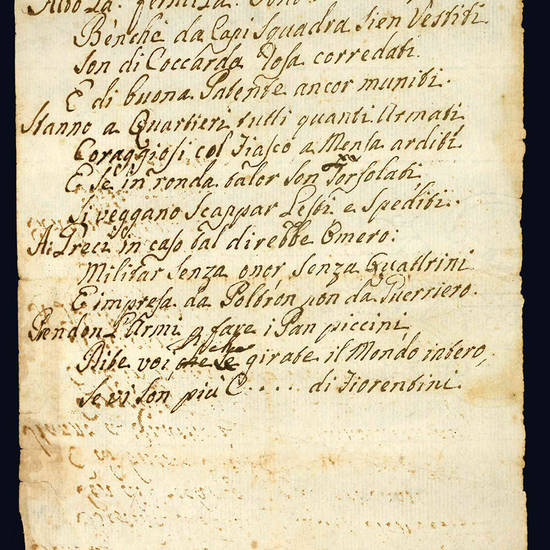 Benchè da Capi Squadra sien Vestiti
Son di Coccarda Tosa corredati
E di buona Patente ancor muniti.
Stanno a Quartieri tutti quanti Armati
Coraggiosi col Fiasco a Mensa arditi
E se in ronda talor son Torsolati
Si veggano scappar Lesti e Spediti.
A i Greci in caso tal direbbe Omero:
Militar senza onor senza Quattrini
E impresa da Poltron non da Guerriero.
Prendon l'Armi p fare i Pan piccini,
Dite voi che girate il Mondo intero,
Se vi son più C..... di Fiorentini